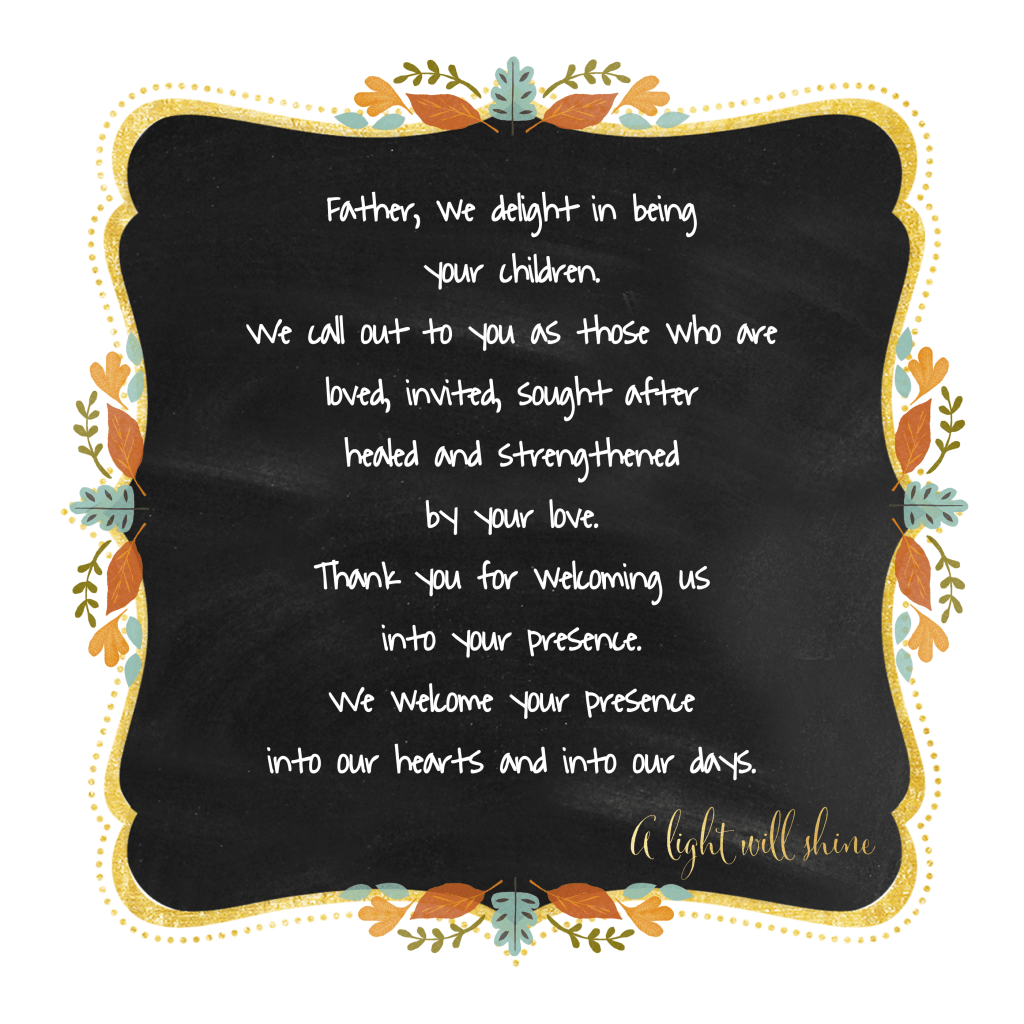 Father, we delight in being
your children.
We call out to you as those who are
loved, invited, sought after
healed and strengthened
by your love.
Thank you for welcoming us
into your presence.
We welcome your presence
into our hearts and into our days.
A light will shine